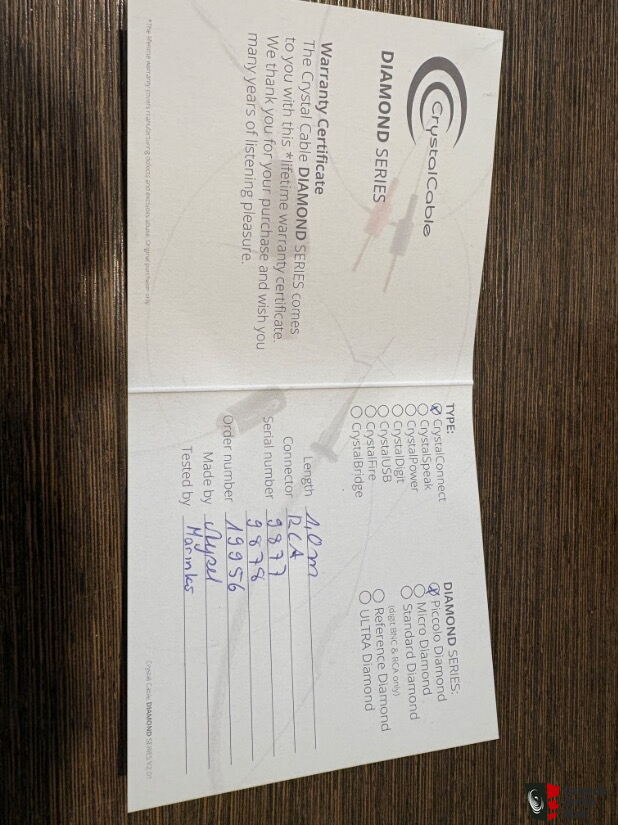 CrystalCable
DIAMOND SERIES
Warranty Certificate
The Crystal Cable DIAMOND SERIES comes
to you with this *lifetime warranty certificate.
We thank you for your purchase and wish you
many years of listening pleasure.
*The lifetime warranty covers manufacturing defects and excludes abuse. Original purchaser only.
TYPE:
CrystalConnect
CrystalSpeak
CrystalPower
CrystalDigit
CrystalUSB
CrystalFire
CrystalBridge
DIAMOND SERIES:
Piccolo Diamond
Micro Diamond
Standard Diamond
(digit BNC & RCA only)
Reference Diamond
ULTRA Diamond
Length 1,0m
Connector RCA
Serial number 9877
9878
Order number 19956
Made by
Tested by Marinks
Crystal Cable DIAMOND SERIES V2.01